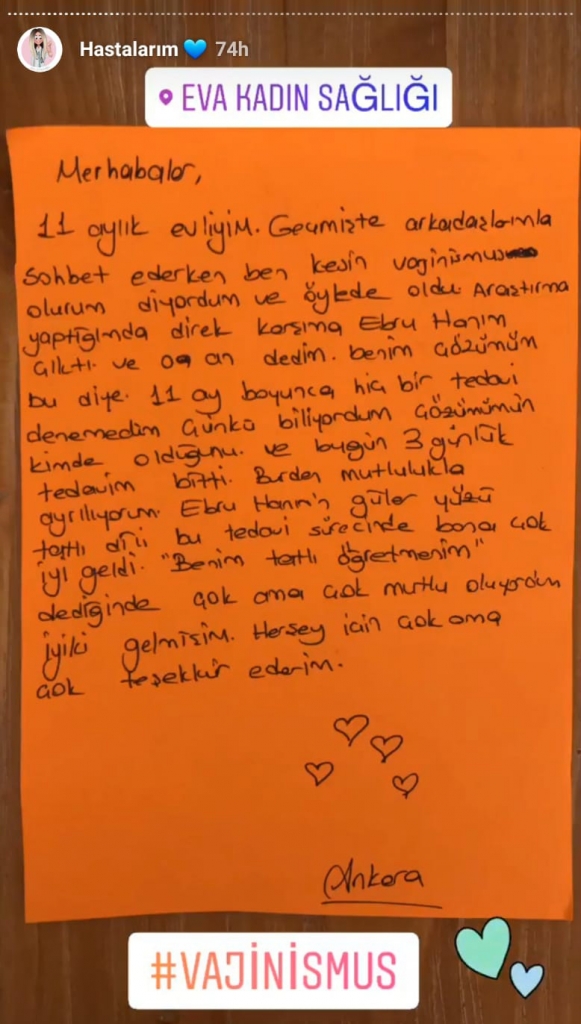 Hastalarım 💙 74h
EVA KADIN SAĞLIĞI
Merhabalar,
11 aylık evliyim. Geçmişte arkadaşlarımla
sohbet ederken ben kesin vaginismus
olurum diyordum ve öylede oldu. Araştırma
yaptığımda direk karşıma Ebru Hanım
çıktı ve o an dedim. benim çözümüm
bu diye. 11 ay boyunca hiç bir tedavi
denemedim çünkü biliyordum çözümümün
kimde olduğunu. ve bugün 3 günlük
tedavim bitti. Burdan mutlulukla
ayrılıyorum. Ebru Hanım'ın güler yüzü
tatlı dili bu tedavi sürecinde bana çok
iyi geldi. "Benim tatlı öğretmenim"
dediğinde çok ama çok mutlu oluyordum
iyiki gelmişim. Herşey için çok ama
çok teşekkür ederim.
Ankara
#VAJİNİSMUS